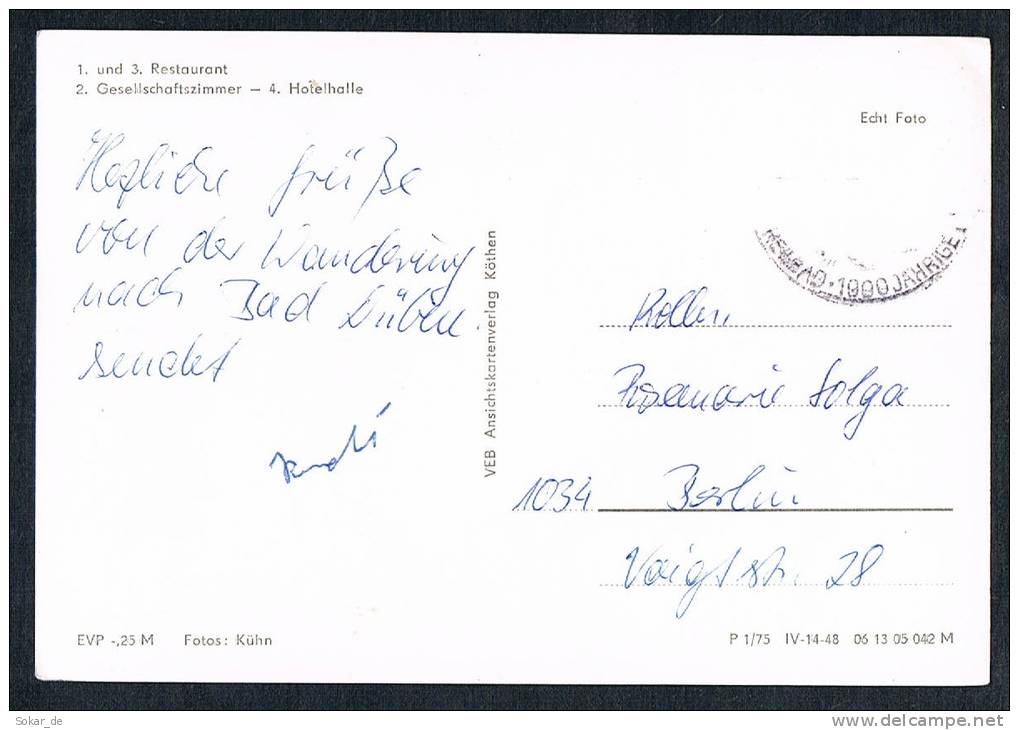 1. und 3. Restaurant
2. Gesellschaftszimmer — 4. Hotelhalle
Echt Foto
Herzliche Grüße
von der Wanderung
nach Bad Düben
sendet
MOORBAD · 1000JÄHRIGE
VEB Ansichtskartenverlag Köthen
Kolln.
Rosemarie Solga
1034 Berlin
Voigtstr. 28
EVP -,25 M Fotos: Kühn
P 1/75 IV-14-48 06 13 05 042 M
Sokar_de
www.delcampe.net